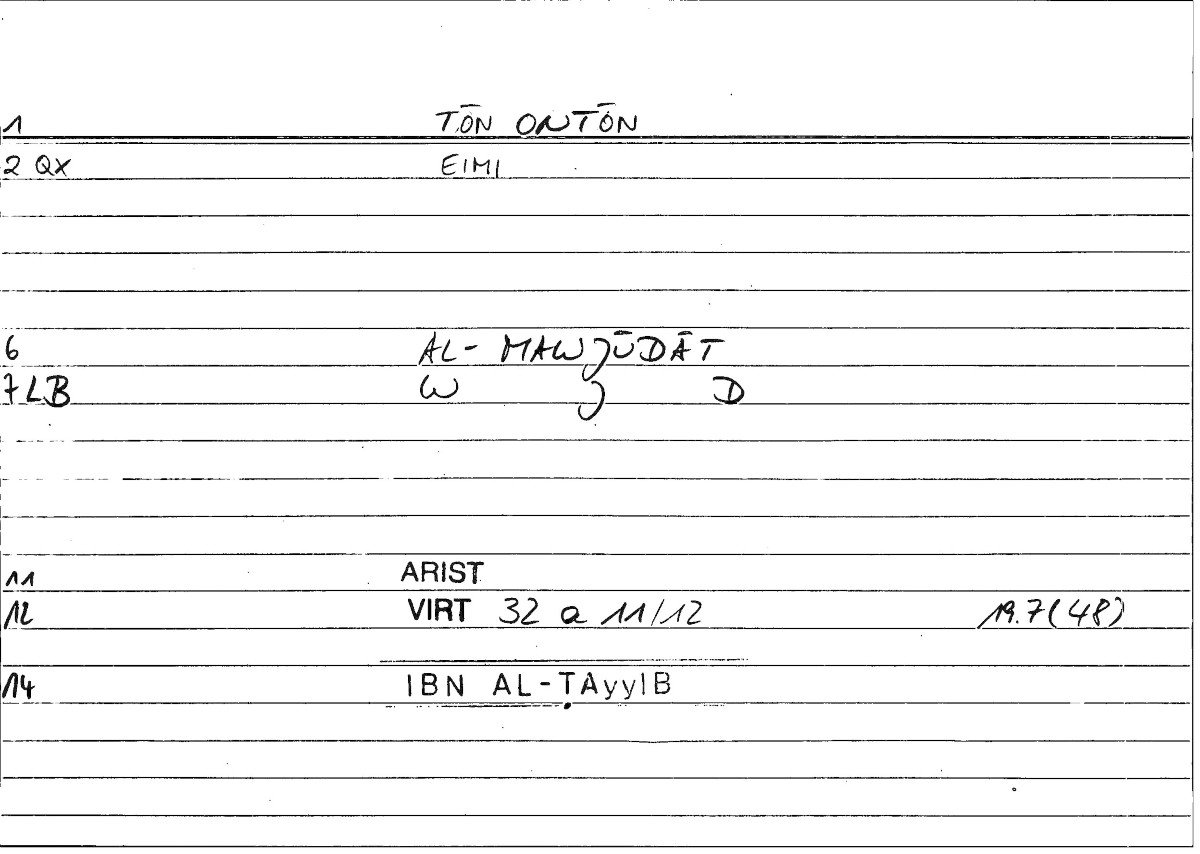 1 TŌN ONTŌN
2 QX EIMI
6 AL- MAWJŪDĀT
7 LB W J D
11 ARIST
12 VIRT 32 a 11/12 19.7(48)
14 IBN AL-ṬAyyIB